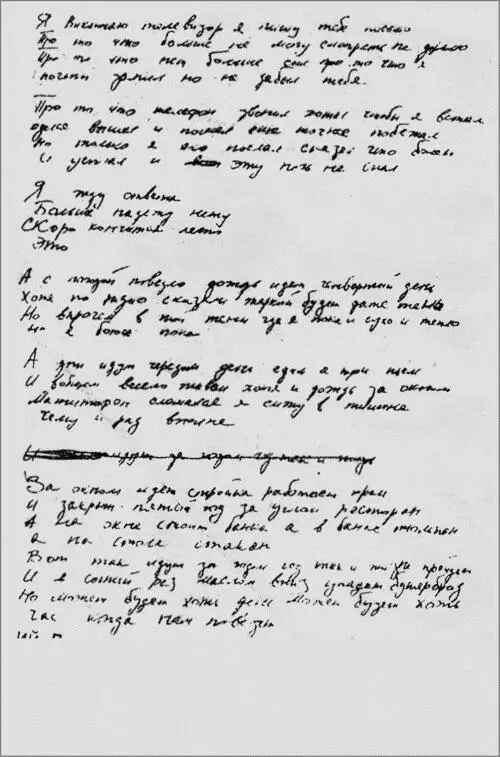 Я Выключаю телевизор я пишу тебе письмо
Про то что больше не могу смотреть на дерьмо
Про то что нет больше сил про то что я
почти запил но не забыл тебя.
Про то что телефон звонил хотел чтобы я встал
оделся вышел и
Но только я его послал сказал что болен
И устал и эту ночь не спал
Я жду ответа
Больше надежд нету
СКоро кончится лето
Это
А с погодой повезло дождь идет четвертый день
Хотя по радио сказали жаркой будет даже тень
Но впрочем в той тени где я пока и сухо и тепло
Но я боюсь пока
А дни идут чередом день едим а три пьем
И вообщем весело живем хотя и дождь за окном
Магнитофон сломался я сижу в тишине
Чему и рад вполне
За окном идет стройка работает кран
И закрыт пятый год за углом ресторан
А на окне стоит банка а в банке тюльпан
а на столе стакан
Вот так идут за годом год так и жизнь пройдет
И в сотый раз маслом вниз упадет бутерброд
Но может будет хоть день может будет хоть
час когда нам повезет